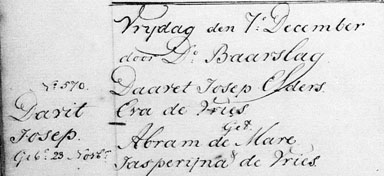 Vrijdag den 7e December
door Ds. Baarslag
No. 570.
Davit
Josep.
Geb. 23 Novbr.
Daavet Josep Elders.
Eva de Vries
Get.
Abram de Mare
Jasperijna de Vries.